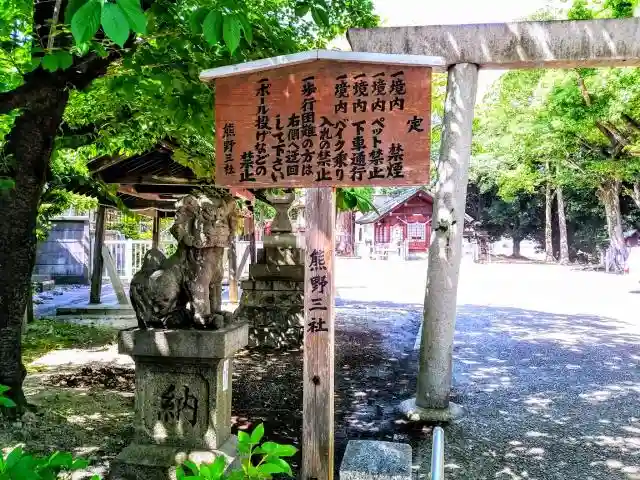 定
一境内 禁煙
一境内 ペット禁止
一境内 下車通行
一境内 バイク乗り
入れの禁止
一歩行困難の方は
右側へ迂回
して下さい
一ボール投げなどの
禁止
熊野三社
熊野三社
納